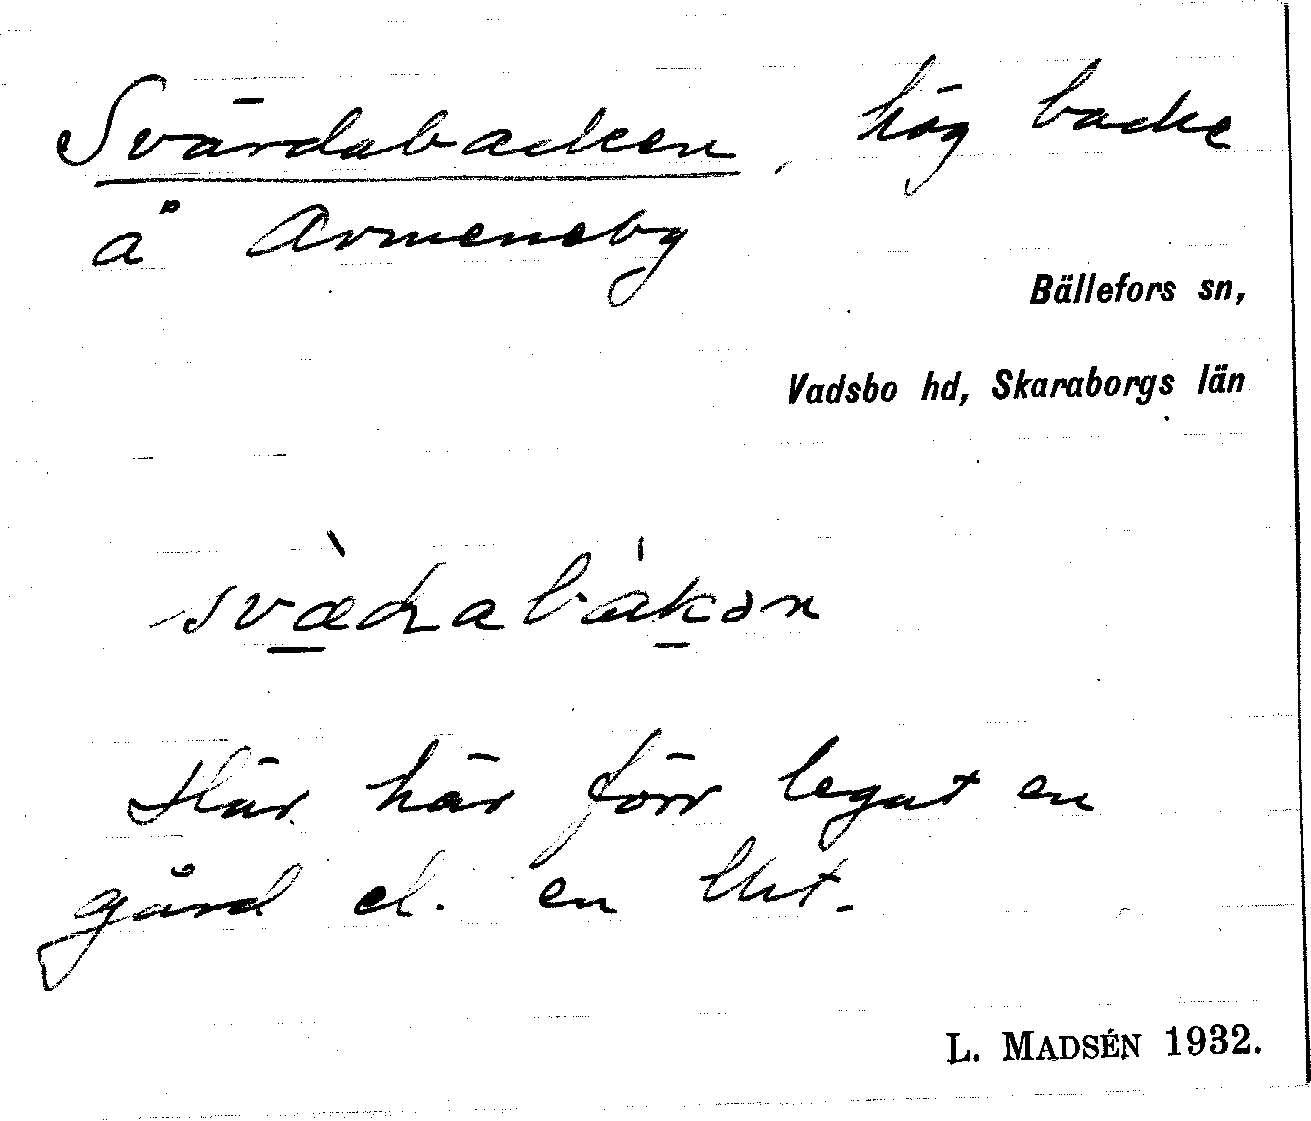 Svärdabacken, hög backe
å Armeneby
Bällefors sn,
Vadsbo hd, Skaraborgs län
svædabakən
Här här förr legat en
gård el. en
L. MADSÉN 1932.